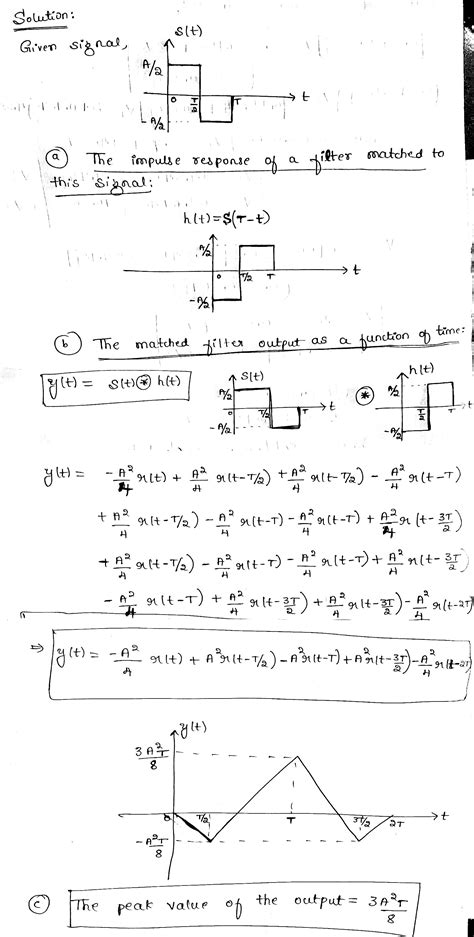 Solution:
Given signal,
S(t)
A/2
0 T/2 T t
-A/2
(a) The impulse response of a filter matched to
this signal:
h(t)=S(T-t)
A/2
0 T/2 T t
-A/2
(b) The matched filter output as a function of time:
y(t) = s(t) ⊛ h(t)
S(t)
A/2
T/2 T t
-A/2
⊛
h(t)
A/2
T/2 t
-A/2
y(t) = -A²/4 r(t) + A²/4 r(t-T/2) + A²/4 r(t-T/2) - A²/4 r(t-T)
+ A²/4 r(t-T/2) - A²/4 r(t-T) - A²/4 r(t-T) + A²/4 r(t-3T/2)
+ A²/4 r(t-T/2) - A²/4 r(t-T) - A²/4 r(t-T) + A²/4 r(t-3T/2)
- A²/4 r(t-T) + A²/4 r(t-3T/2) + A²/4 r(t-3T/2) - A²/4 r(t-2T)
⇒ y(t) = -A²/4 r(t) + A²r(t-T/2) - A²r(t-T) + A²r(t-3T/2) - A²/4 r(t-2T)
y(t)
3A²T/8
0 T/2 T 3T/2 2T t
-A²T/8
(c) The peak value of the output = 3A²T/8